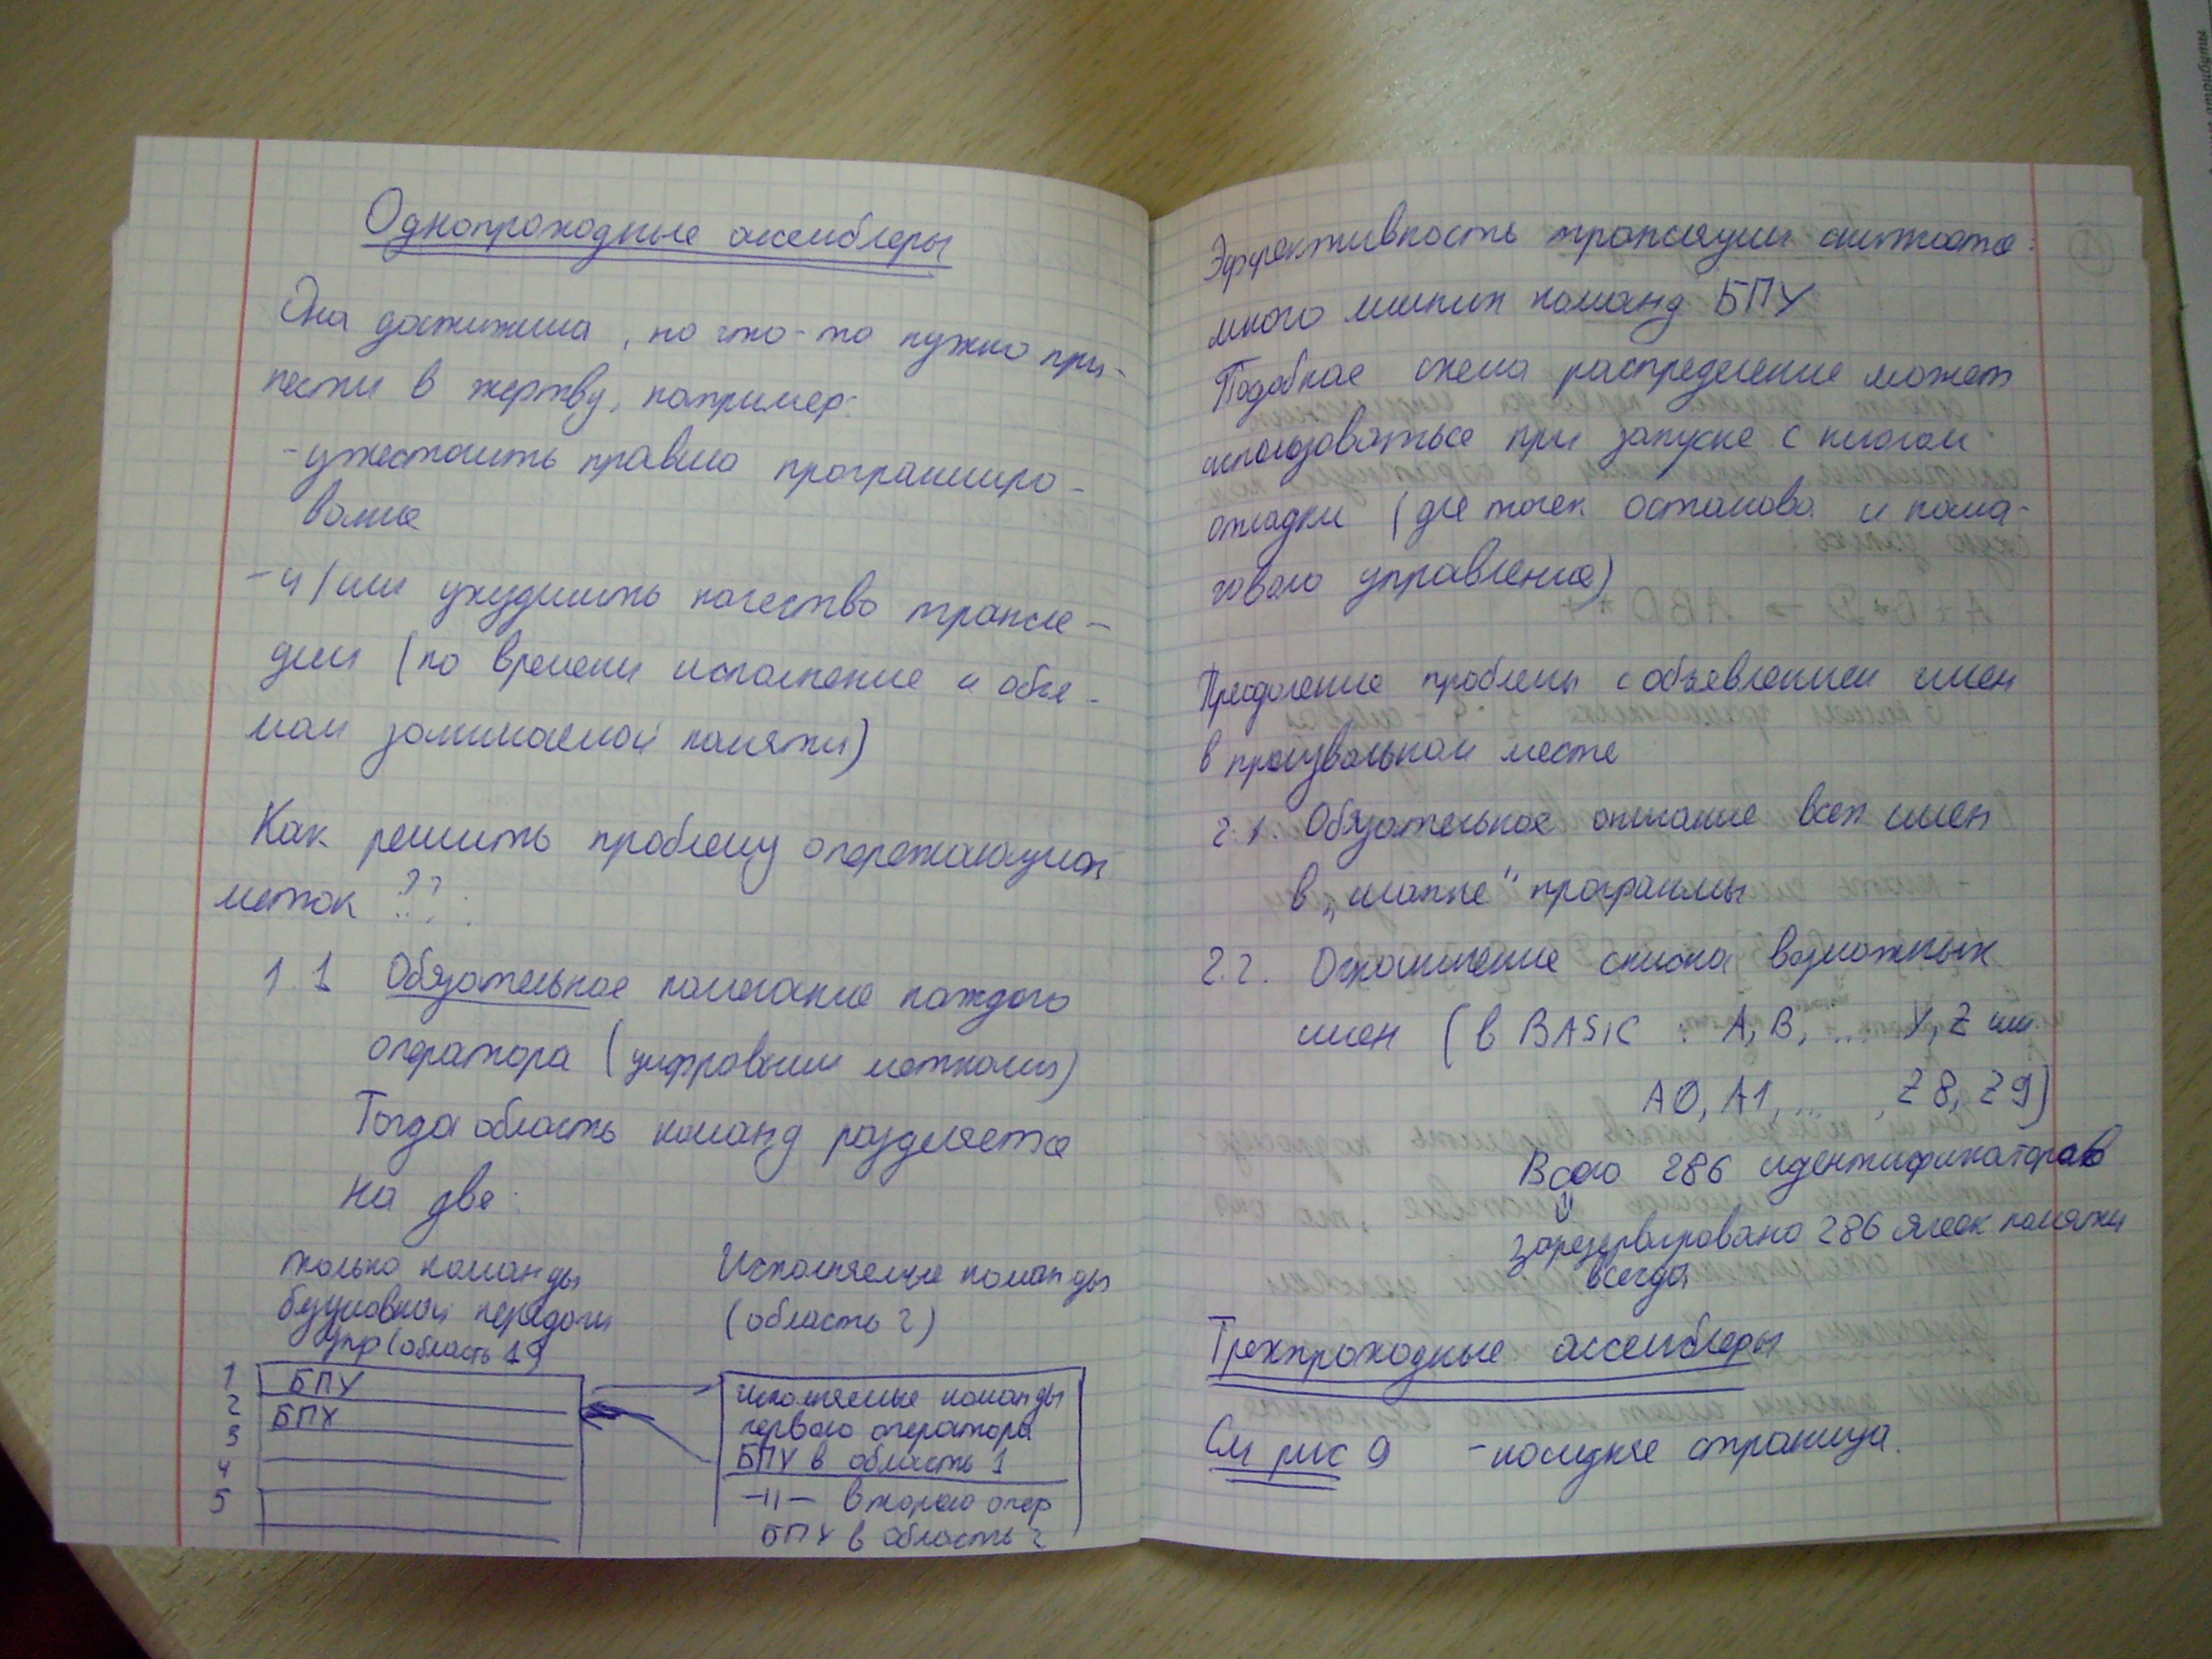 Однопроходные ассемблеры
Она достижима, но что-то нужно при-
нести в жертву, например:
- ужесточить правила программиро-
вания
- и/или ухудшить качество трансля-
ции (по времени исполнения и объе-
мам занимаемой памяти)
Как решить проблему опережающих
меток ??
1.1 Обязательное помечание каждого
оператора (цифровыми метками)
Тогда область команд разделяется
на две:
только команды
безусловной передачи
упр (область 1)
1 БПУ
2 БПУ
3
4
5
Исполняемые команды
(область 2)
исполняемые команды
первого оператора
БПУ в область 1
-॥- второго опер
БПУ в область 2
Эффективность трансляции снижается:
много лишних команд БПУ
Подобная схема распределения может
использоваться при запуске с
отладки (для точек останова и поша-
гового управления)
Преодоление проблемы с объявлением имен
в произвольном месте
2.1. Обязательное описание всех имен
в „шапке" программы
2.2. Ограничение списка возможных
имен (в BASIC : A, B, ... Y, Z или
A0, A1, ... , Z8, Z9)
Всего 286 идентификаторов
⇓
зарезервировано 286 ячеек памяти
всегда
Трехпроходные ассемблеры
См рис 9 - последняя страница.